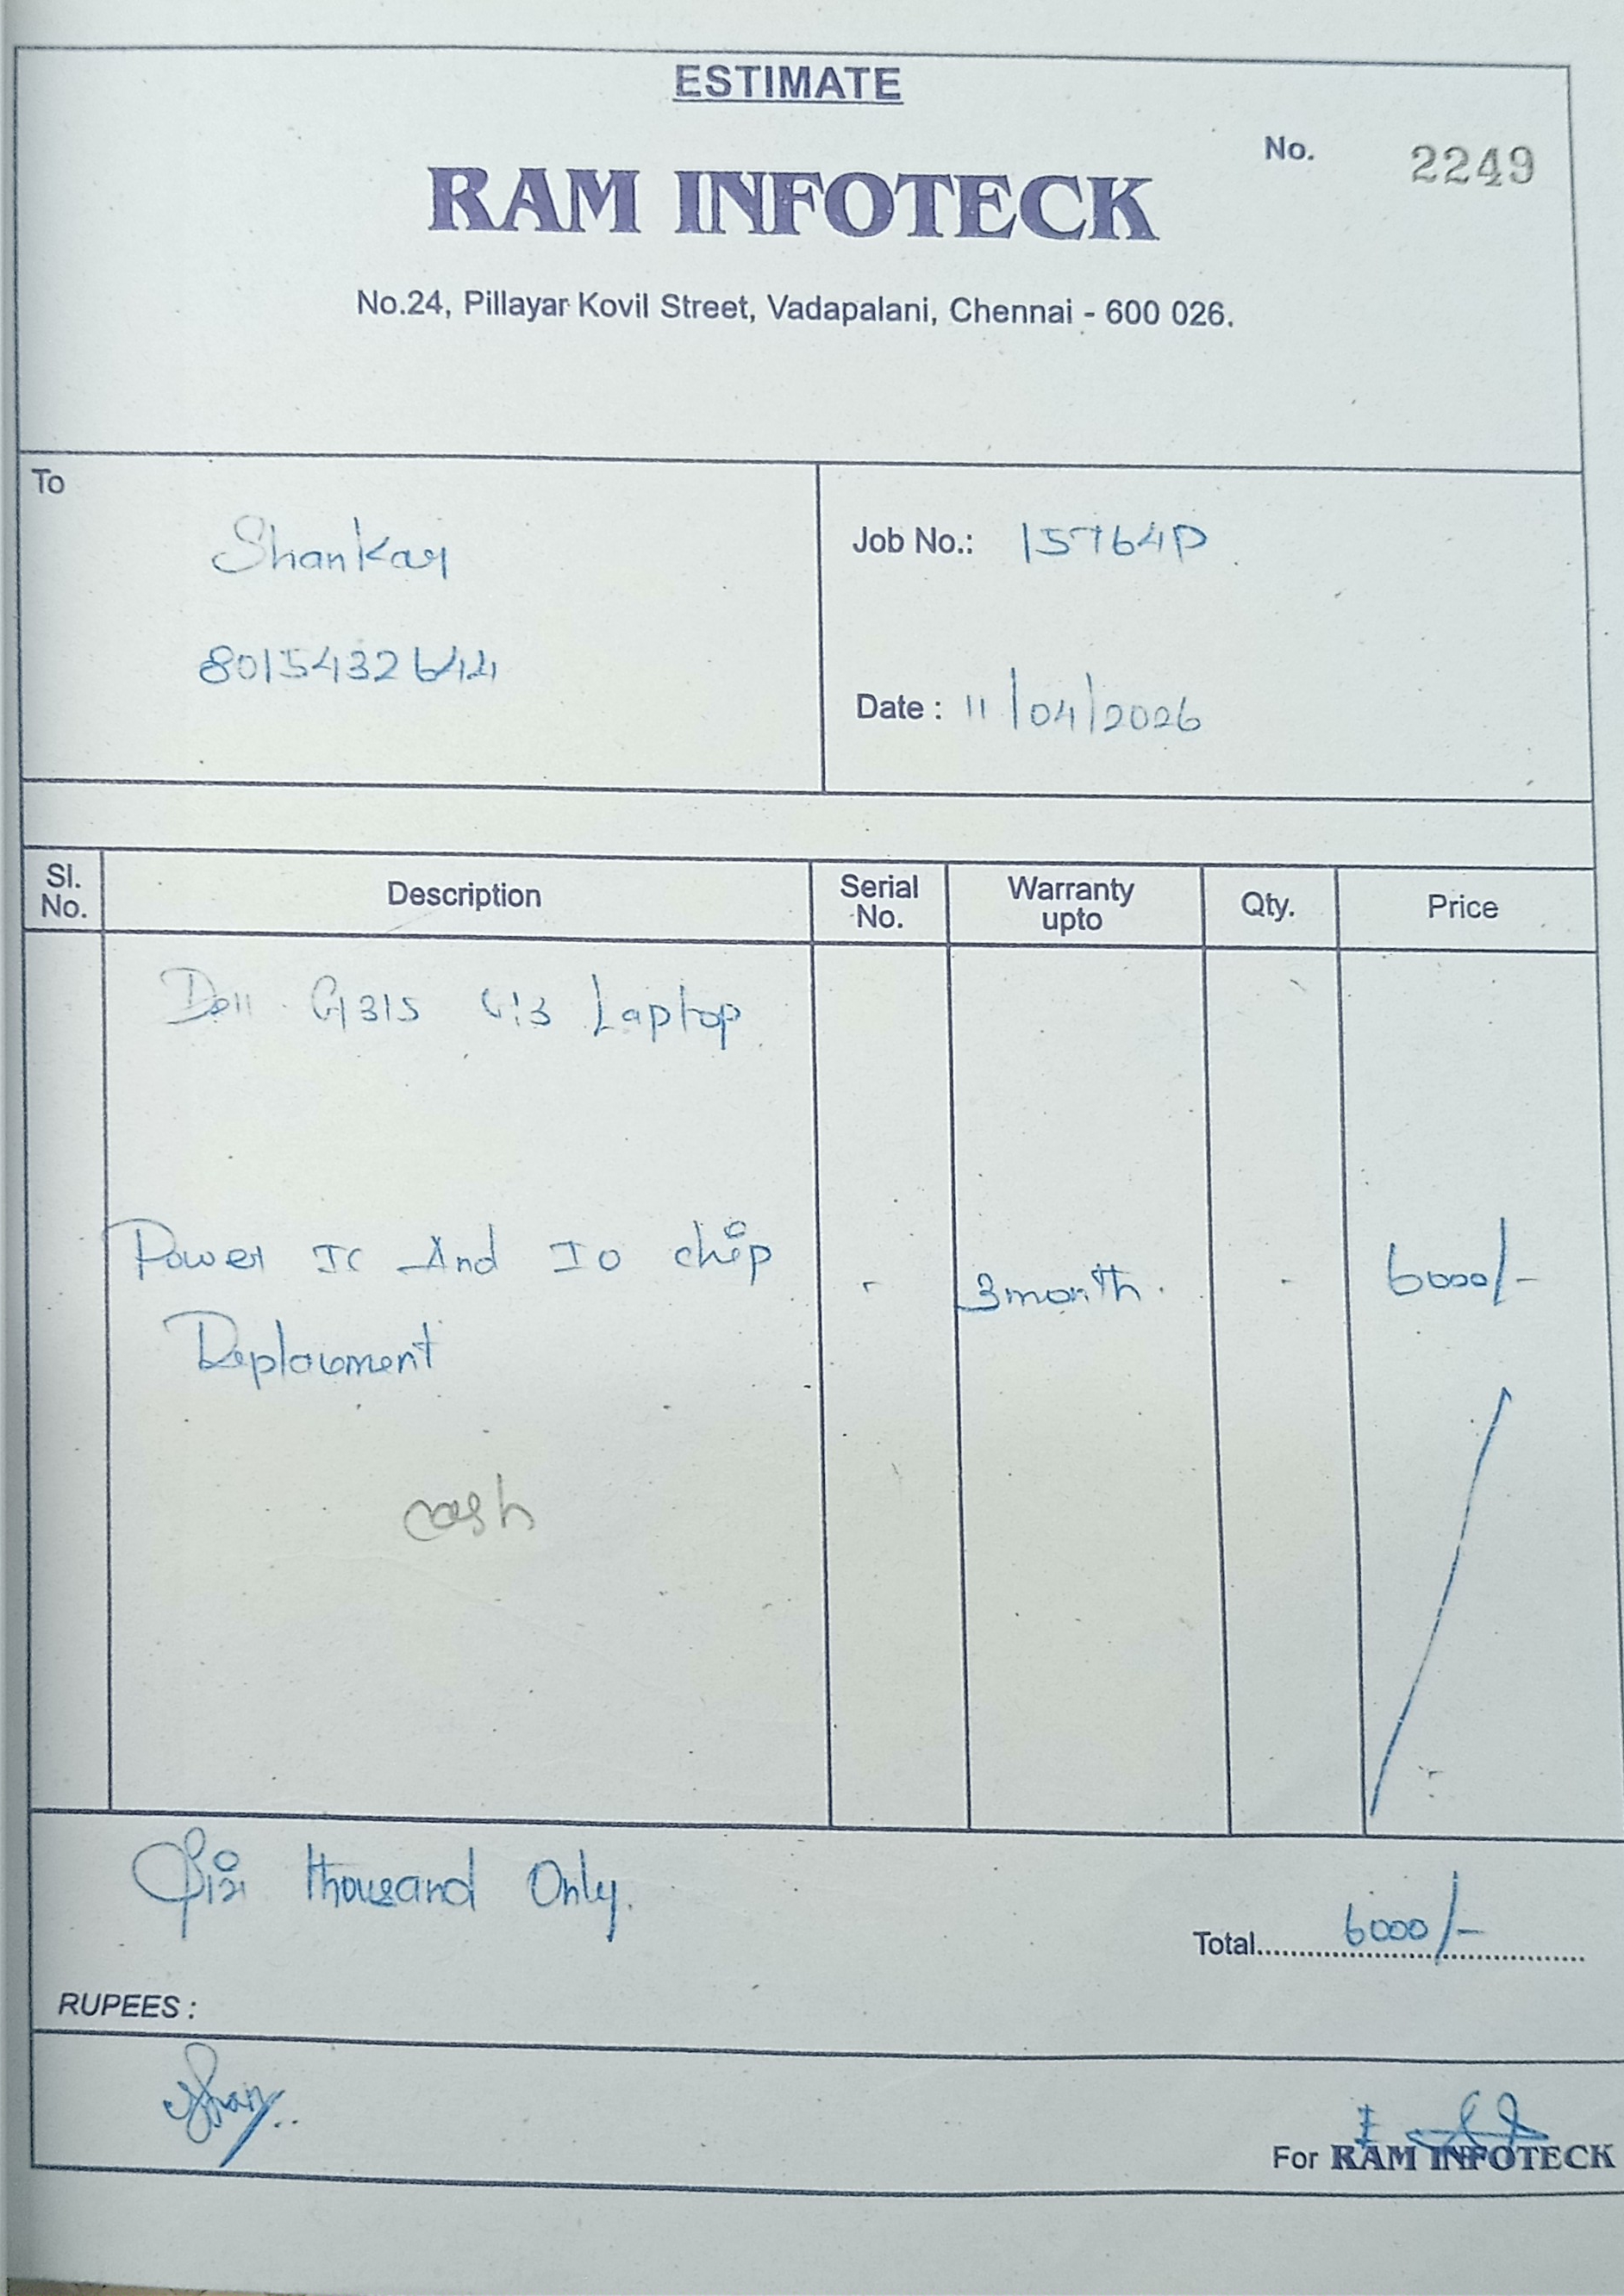 ESTIMATE
No. 2249
RAM INFOTECK
No.24, Pillayar Kovil Street, Vadapalani, Chennai - 600 026.
To
Shankar
8015432644
Job No.: 15764P
Date : 11/04/2026
Sl. No. Description Serial No. Warranty upto Qty. Price
Dell G315 Laptop
Power IC And IO chip - 3month. - 6000/-
Replacement
cash
Six thousand Only.
Total 6000/-
RUPEES :
For RAM INFOTECK